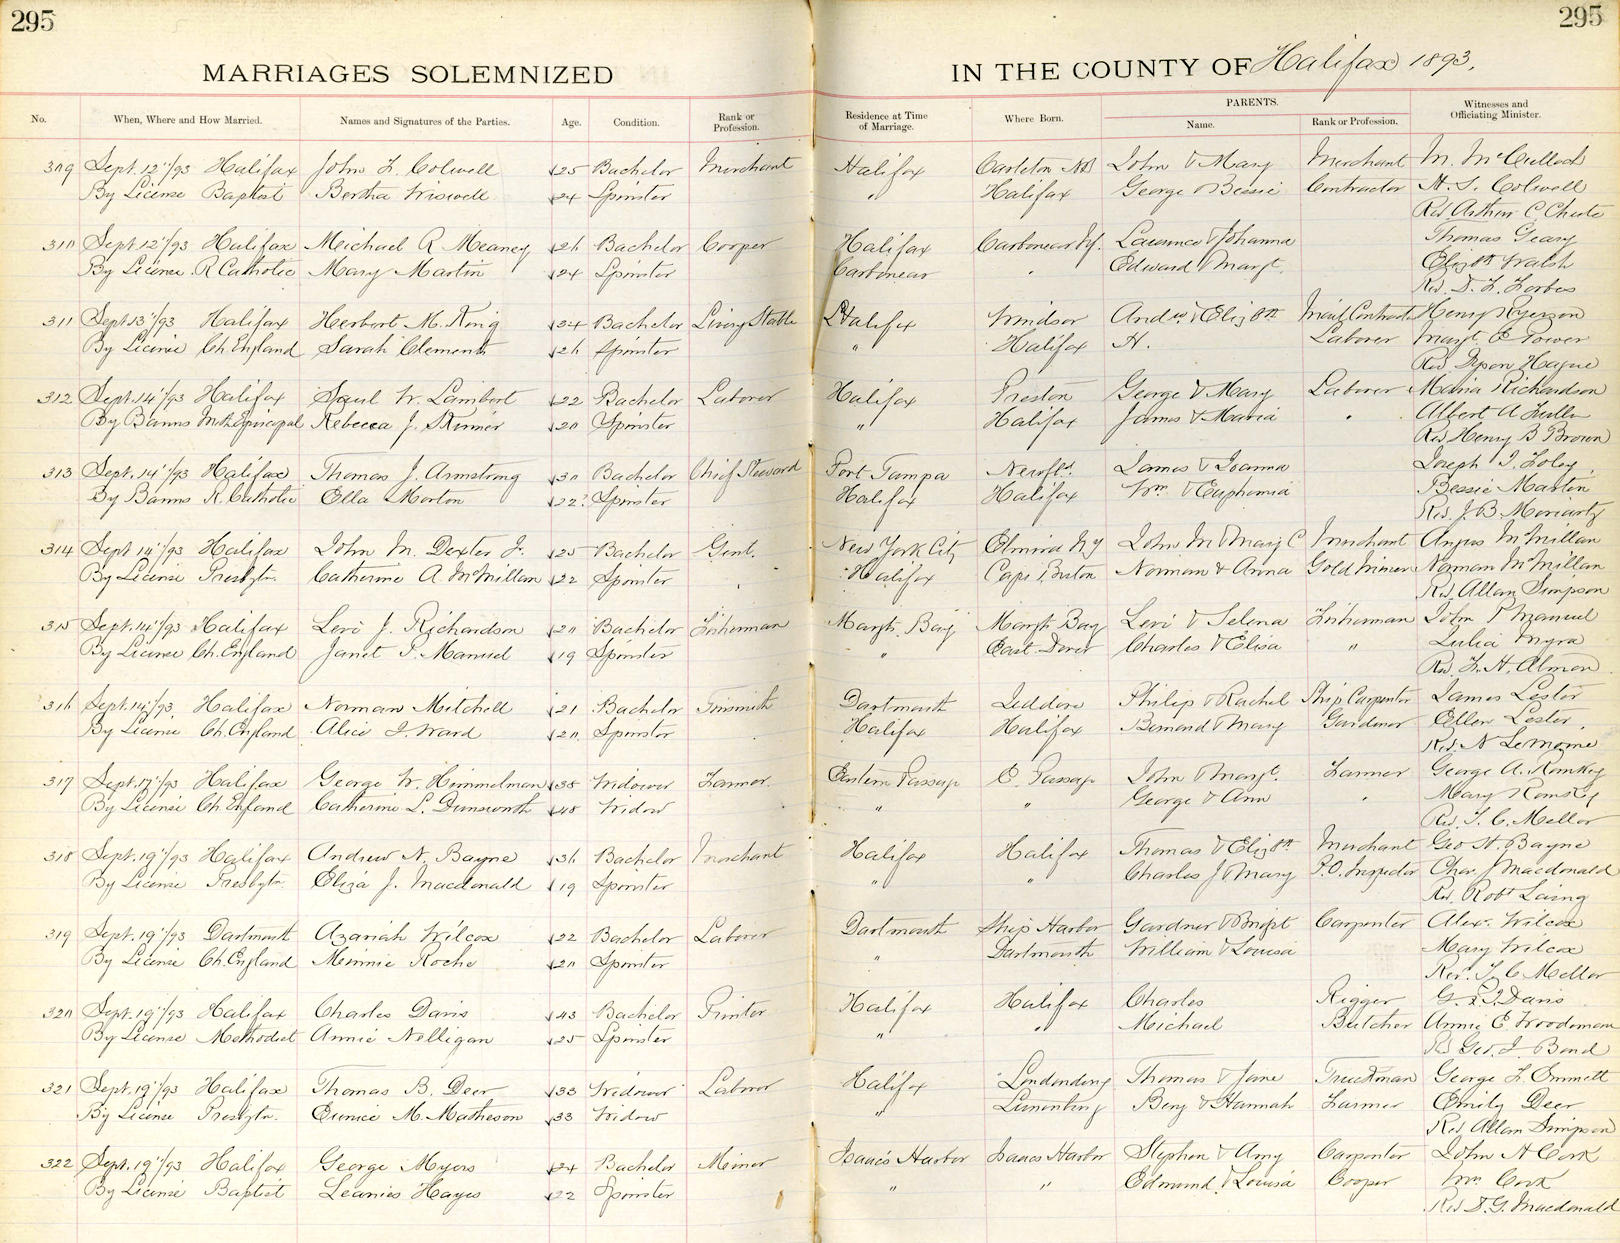 295
295
MARRIAGES SOLEMNIZED
IN THE COUNTY OF Halifax 1893.
No. When, Where and How Married. Names and Signatures of the Parties. Age. Condition. Rank or Profession. Residence at Time of Marriage. Where Born. PARENTS. Name. Rank or Profession. Witnesses and Officiating Minister.
309 Sept. 12"/93 Halifax John F. Colwell 25 Bachelor Merchant Halifax Carleton NB John & Mary Merchant M. McCulloch
By License Baptist Bertha Wiswell 24 Spinster " Halifax George & Bessie Contractor H. S. Colwell
Rev Arthur C. Chute
310 Sept. 12"/93 Halifax Michael R Meaney 26 Bachelor Cooper Halifax Carbonear Nf. Lawrence & Johanna Thomas Geary
By License R Catholic Mary Martin 24 Spinster Carbonear " Edward & Margt. Elizbth Walsh
Rev.
311 Sept 13"/93 Halifax Herbert M. King 24 Bachelor Livery Stable Halifax Windsor Andw. & Elizbth Mail Contract Henry Ryerson
By License Ch. England Sarah Clements 26 Spinster " Halifax H. Laborer Margt. E Power
Rev Dyson Hague
312 Sept. 14"/93 Halifax Saul W. Lambert 22 Bachelor Laborer Halifax Preston George & Mary Laborer Maria Richardson
By Banns Meth Episcopal Rebecca J. Skinner 20 Spinster " Halifax James & Maria " Albert A
Rev Henry B Brown
313 Sept. 14"/93 Halifax Thomas J. Armstrong 30 Bachelor Chief Steward Port Tampa Newfld. James & Joanna Joseph I. Foley
By Banns R. Catholic Ella Morton 22? Spinster Halifax Halifax Wm & Euphemia Bessie Martin
Rev. J. B. Moriarty
314 Sept 14"/93 Halifax John M. Dexter Jr. 25 Bachelor Gent. New York City Elmira N.Y John M & Mary C Merchant Angus McMillan
By License Presbytn. Catherine A. McMillan 22 Spinster Halifax Cape Breton Norman & Anna Gold Miner Norman McMillan
Rev. Allan Simpson
315 Sept. 14"/93 Halifax Levi J. Richardson 20 Bachelor Fisherman Margts. Bay Margts Bay Levi & Selena Fisherman John P Manuel
By License Ch. England Janet S. Manuel 19 Spinster " East Dover Charles & Elisa " Julia Myra
Rev. F. H. Almon
316 Sept. 14"/93 Halifax Norman Mitchell 21 Bachelor Tinsmith Dartmouth Jeddore Philip & Rachel Ship Carpenter James Lester
By License Ch. England Alice I. Ward 20 Spinster Halifax Halifax & Mary Gardener Ellen Lester
Rev. N LeMoine
317 Sept. 17"/93 Halifax George W. Himmelman 38 Widower Farmer Eastern Passage E. Passage John & Margt. Farmer George A. Romkey
By License Ch. England Catherine L. Dunsworth 48 Widow " " George & Ann " Mary Romkey
Rev. T. C. Mellor
318 Sept. 19"/93 Halifax Andrew N. Bayne 36 Bachelor Merchant Halifax Halifax Thomas & Elizbth Merchant Geo H. Bayne
By License Presbytn. Eliza J. Macdonald 19 Spinster " " Charles J & Mary P.O. Inspector Chas. J Macdonald
Rev. Robt Laing
319 Sept. 19"/93 Dartmouth Azariah Wilcox 22 Bachelor Laborer Dartmouth Ship Harbor Gardner & Bridgt Carpenter Alex. Wilcox
By License Ch. England Minnie Roche 20 Spinster " Dartmouth William & Louisa Mary Wilcox
Rev. T. C Mellor
320 Sept. 19"/93 Halifax Charles Davis 43 Bachelor Printer Halifax Halifax Charles Rigger Davis
By License Methodist Annie Nelligan 25 Spinster " " Michael Butcher Annie E Woodman
Rev Geo. J. Bond
321 Sept. 19"/93 Halifax Thomas B. Deer 33 Widower Laborer Halifax Londonderry Thomas & Jane Truckman George F. Emmett
By License Presbytn. Eunice M. Matheson 33 Widow " Lunenburg Benj & Hannah Farmer Emily Deer
Rev Allan Simpson
322 Sept. 19"/93 Halifax George Myers 24 Bachelor Miner Isaacs Harbor Isaacs Harbor Stephen & Amy Carpenter John H Cork
By License Baptist Hayes 22 Spinster " " Edmund & Louisa Cooper Wm Cork
Rev D. G. Macdonald